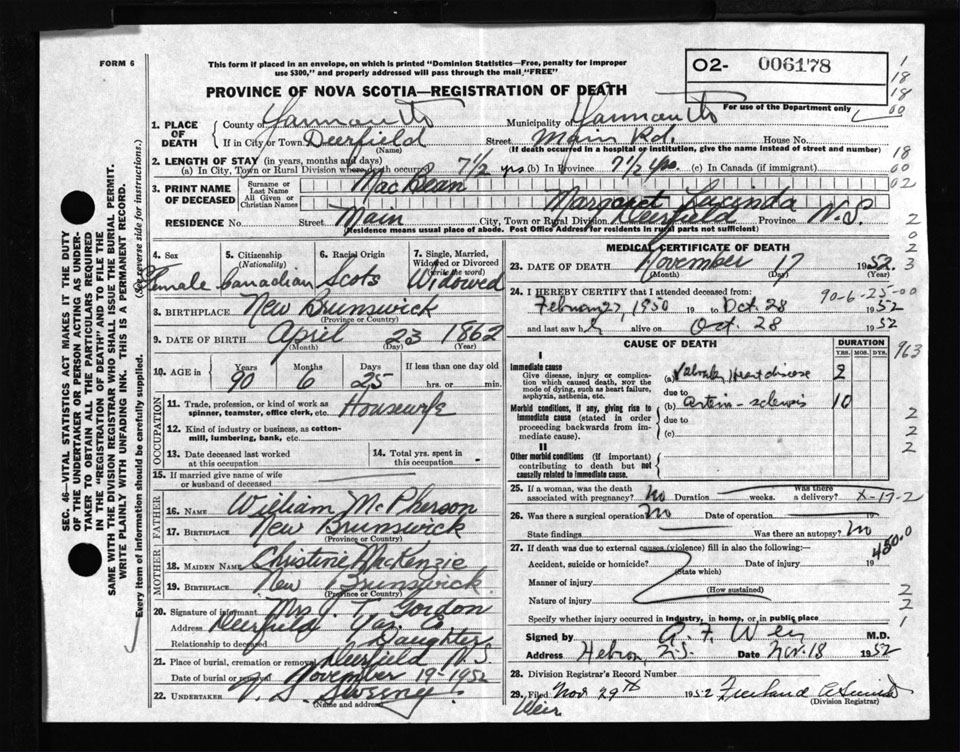 FORM 6
This form if placed in an envelope, on which is printed "Dominion Statistics—Free, penalty for improper
use $300," and properly addressed will pass through the mail "FREE"
O2- 006178
For use of the Department only
PROVINCE OF NOVA SCOTIA—REGISTRATION OF DEATH
1. PLACE OF DEATH
County of Yarmouth Municipality of Yarmouth
If in City or Town Deerfield (Name) Street Main Rd. House No.
(If death occurred in a hospital or institution, give the name instead of street and number)
2. LENGTH OF STAY (in years, months and days)
(a) In City, Town or Rural Division where death occurred 7 1/2 yrs (b) In Province 7 1/2 yrs. (c) In Canada (if immigrant)
3. PRINT NAME OF DECEASED
Surname or Last Name MacBean
All Given or Christian Names Margaret Lucinda
RESIDENCE No. Street Main City, Town or Rural Division Deerfield Province N.S.
(Residence means usual place of abode. Post Office Address for residents in rural parts not sufficient)
4. Sex Female
5. Citizenship (Nationality) Canadian
6. Racial Origin Scots
7. Single, Married, Widowed or Divorced (write the word) Widowed
8. BIRTHPLACE New Brunswick
(Province or Country)
9. DATE OF BIRTH April 23 1862
(Month) (Day) (Year)
10. AGE in Years 90 Months 6 Days 25 If less than one day old hrs. or min.
OCCUPATION
11. Trade, profession, or kind of work as spinner, teamster, office clerk, etc. Housewife
12. Kind of industry or business, as cotton-mill, lumbering, bank, etc.
13. Date deceased last worked at this occupation
14. Total yrs. spent in this occupation
15. If married give name of wife or husband of deceased
FATHER
16. NAME William McPherson
17. BIRTHPLACE New Brunswick
(Province or Country)
MOTHER
18. MAIDEN NAME Christine McKenzie
19. BIRTHPLACE New Brunswick
(Province or Country)
20. Signature of informant Mrs. J. T. Gordon
Address Deerfield Yar. Co.
Relationship to deceased Daughter
21. Place of burial, cremation or removal Deerfield N.S.
November 19-1952
22. UNDERTAKER V. S. Sweeny
(Name and address)
MEDICAL CERTIFICATE OF DEATH
23. DATE OF DEATH November 17 1952
(Month) (Day) (Year)
90-6-25-00
24. I HEREBY CERTIFY that I attended deceased from:
February 27, 1950 19 to Oct. 28 1952
and last saw h alive on Oct. 28 1952
CAUSE OF DEATH
DURATION
YRS. MOS. DYS.
I
Immediate cause
Give disease, injury or complication which caused death, NOT the mode of dying, such as heart failure, asphyxia, asthenia, etc.
(a) Valvular Heart disease 2
due to
Morbid conditions, if any, giving rise to immediate cause (stated in order proceeding backwards from immediate cause).
(b) Arterio-sclerosis 10
due to
(c)
II
Other morbid conditions (if important) contributing to death but not causally related to immediate cause.
25. If a woman, was the death associated with pregnancy? No Duration weeks. Was there a delivery?
X-17-2
26. Was there a surgical operation? No Date of operation 19
State findings Was there an autopsy? No
450.0
27. If death was due to external causes (violence) fill in also the following:—
Accident, suicide or homicide? Date of injury 19
(State which)
Manner of injury
(How sustained)
Nature of injury
Specify whether injury occurred in industry, in home, or in public place
Signed by A. F. Weir M.D.
Address Hebron, N.S. Date Nov. 18 1952
28. Division Registrar's Record Number
29. Filed Nov 29th 1952
Weir
(Division Registrar)
SEC. 46—VITAL STATISTICS ACT MAKES IT THE DUTY
OF THE UNDERTAKER OR PERSON ACTING AS UNDER-
TAKER TO OBTAIN ALL THE PARTICULARS REQUIRED
IN THE "REGISTRATION OF DEATH" AND TO FILE THE
SAME WITH THE DIVISION REGISTRAR WHO SHALL ISSUE THE BURIAL PERMIT.
WRITE PLAINLY WITH UNFADING INK. THIS IS A PERMANENT RECORD.
Every item of information should be carefully supplied. (See reverse side for instructions.)
1
18
18
00
18
00
02
2
0
2
3
963
2
2
2
0
2
2
1